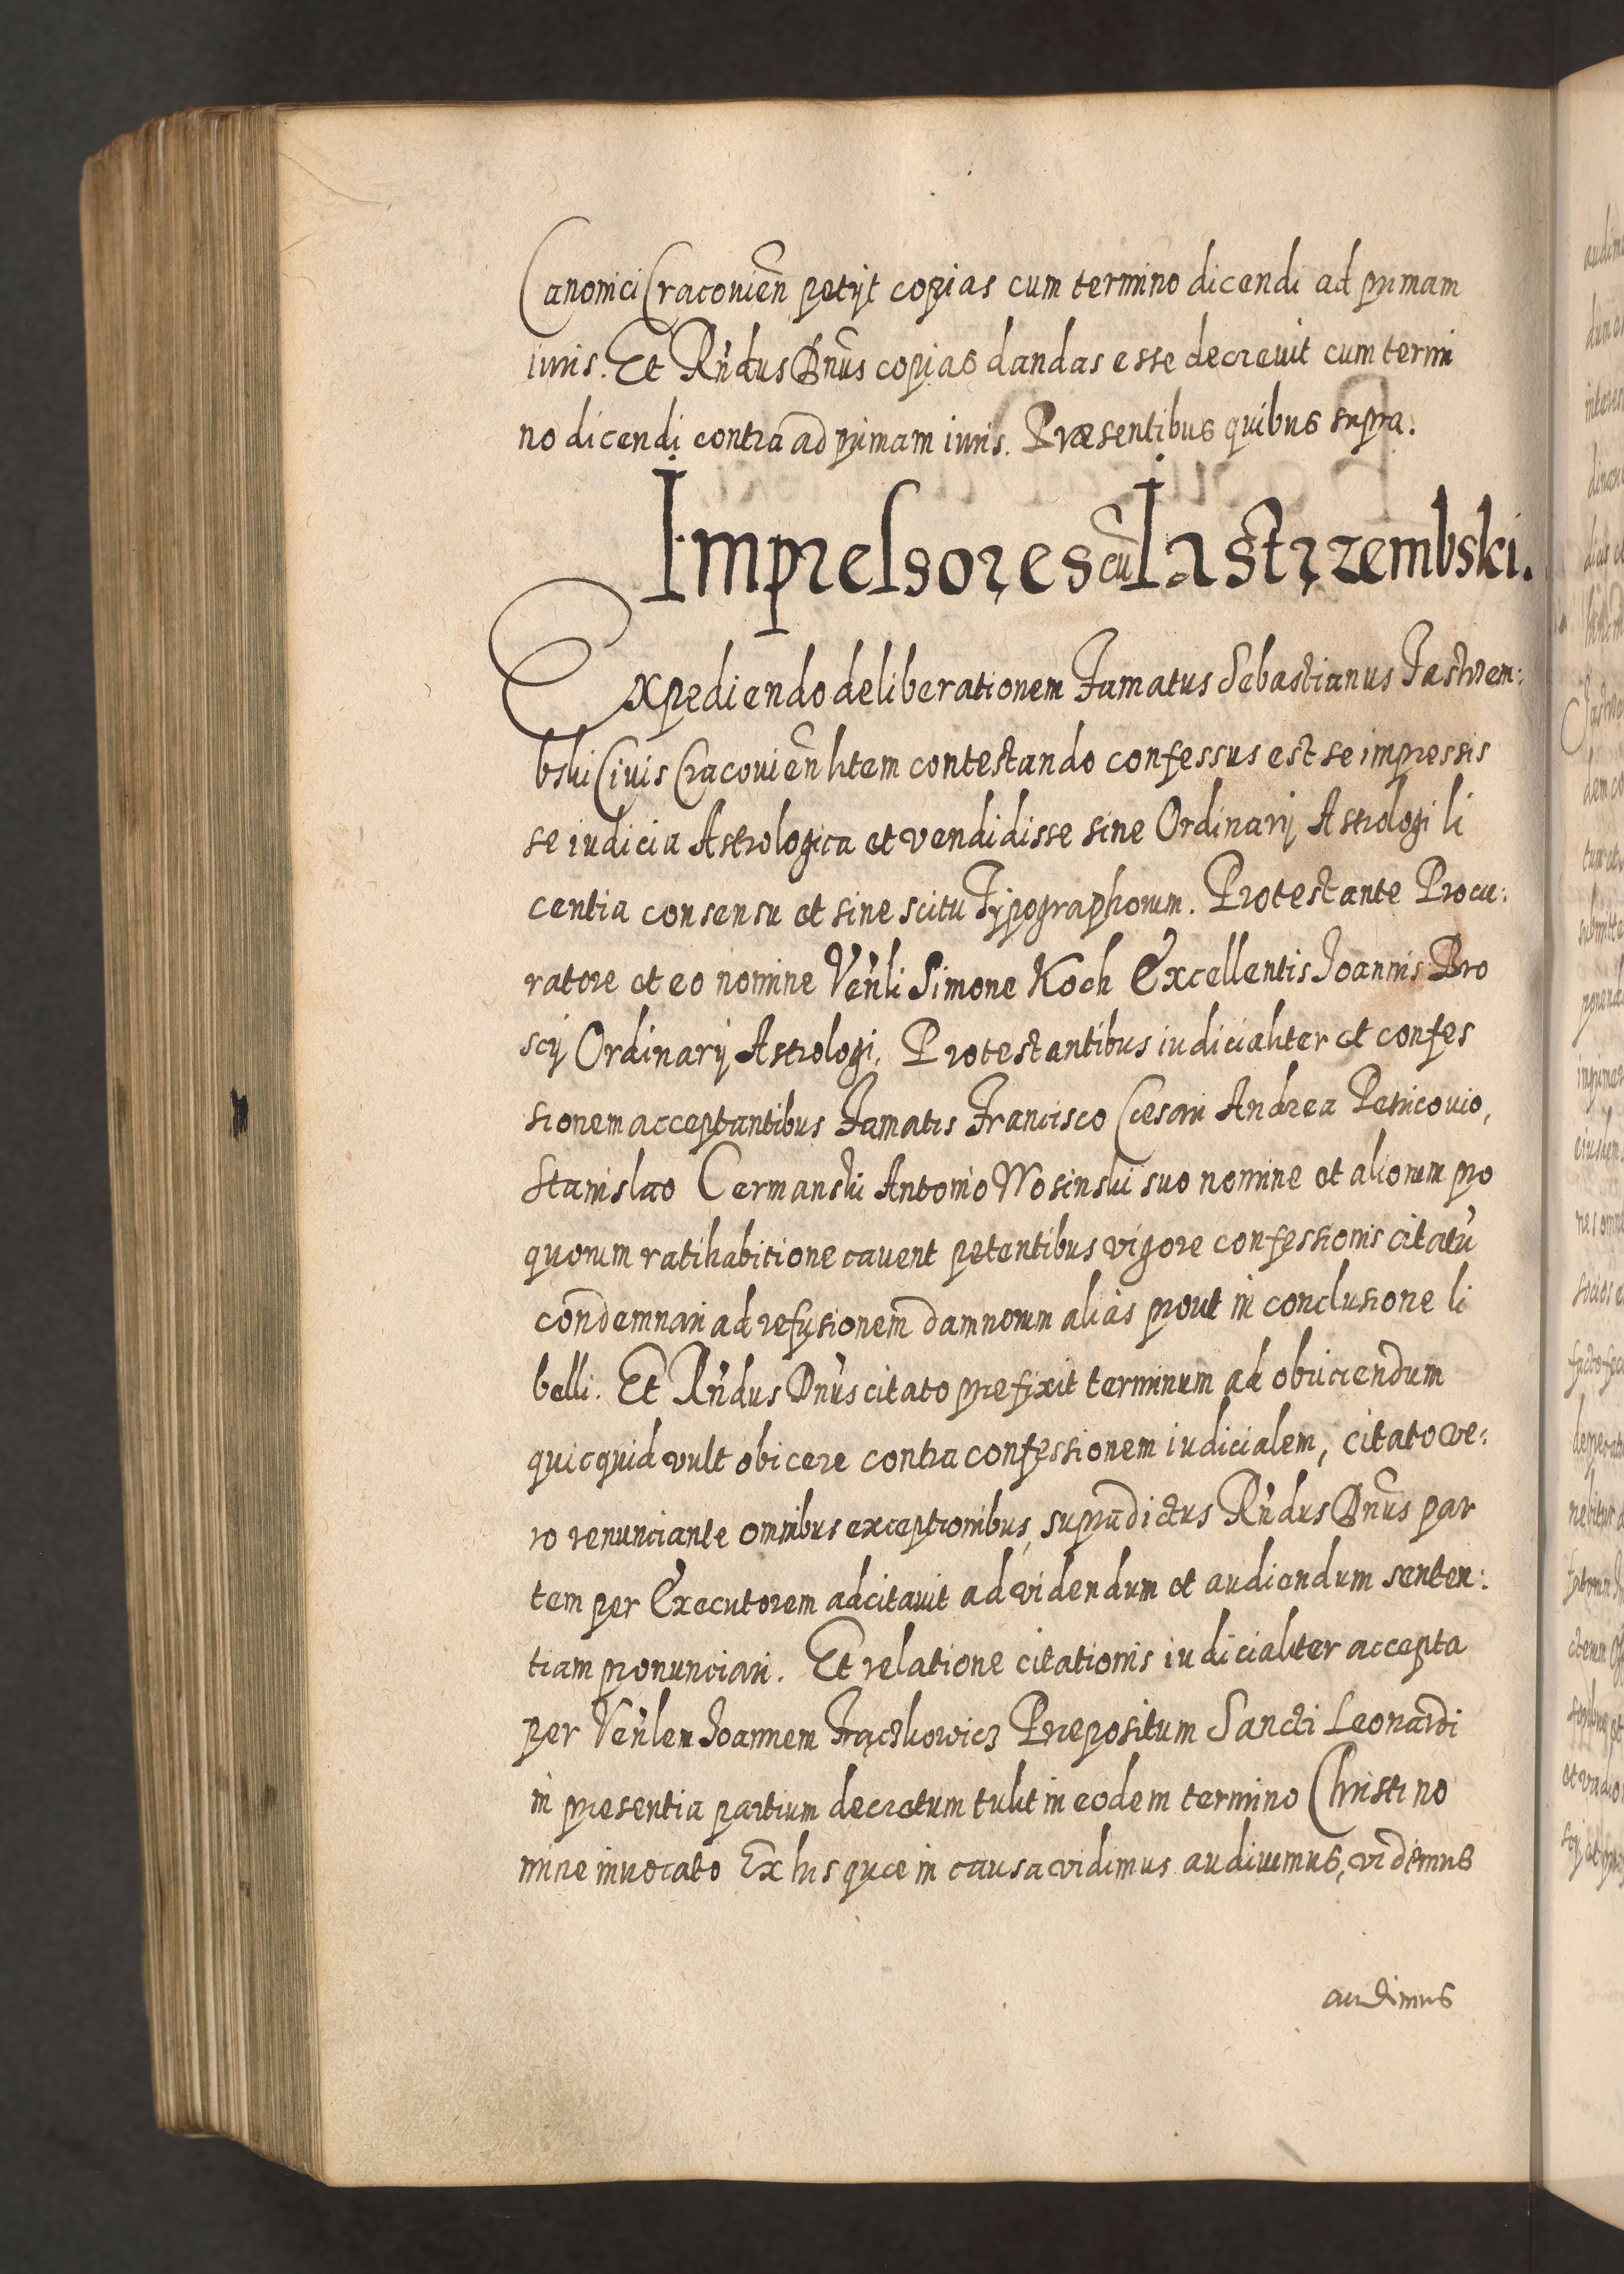 Canonici Cracouien petijt copias cum termino dicendi ad primam
iuris. Et Rndus Dnus copias dandas esse decreuit cum termi
no dicendi contra ad primam iuris. Præsentibus quibus supra.
Impressores cu Iastrzembski.
Expediendo deliberationem Famatus Sebastianus Jastrzem:
bski Ciuis Cracouien litem contestando confessus est se impressis
se iudicia Astrologica et vendidisse sine Ordinarij Astrologi li
centia consensu et sine scitu Typographorum. Protestante Procu:
ratore et eo nomine Venli Simone Koch Excellentis Joannis Bro
scij Ordinarij Astrologi, Protestantibus iudicialiter et confes
sionem acceptantibus Famatis Francisco Cesari Andrea Petricouio,
Stanislao Cermanski Antonio Wosinski suo nomine et aliorum pro
quorum ratihabitione cauent petentibus vigore confessionis citatu
condemnari ad refusionem damnorum alias prout in conclusione li
belli. Et Rndus Dnus citato prefixit terminum ad obiiciendum
quicquid vult obicere contra confessionem iudicialem, citato ve:
ro renunciante omnibus exceptionibus, supradictus Rndus Dnus par
tem per Executorem adcitauit ad videndum et audiendum senten:
tiam pronunciari. Et relatione citationis iudicialiter accepta
per Venlem Joannem Frąckowicz Præpositum Sancti Leonardi
in presentia partium decretum tulit in eodem termino Christi no
mine inuocato Ex his quæ in causa vidimus audiuimus, videmus
audimus